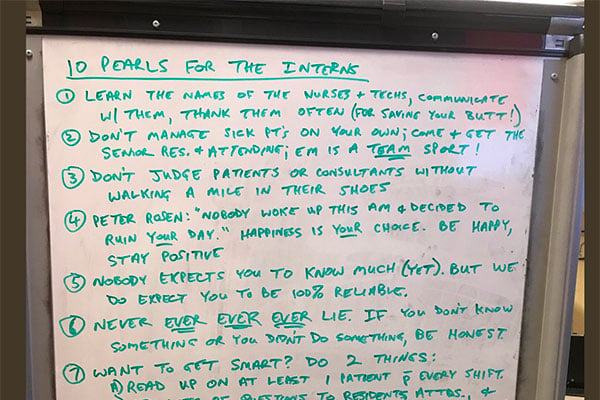 10 PEARLS FOR THE INTERNS
① LEARN THE NAMES OF THE NURSES + TECHS, COMMUNICATE
W/ THEM, THANK THEM OFTEN (FOR SAVING YOUR BUTT!)
② DON'T MANAGE SICK PT'S ON YOUR OWN; COME + GET THE
SENIOR RES. + ATTENDING; EM IS A TEAM SPORT!
③ DON'T JUDGE PATIENTS OR CONSULTANTS WITHOUT
WALKING A MILE IN THEIR SHOES
④ PETER ROSEN: "NOBODY WOKE UP THIS AM & DECIDED TO
RUIN YOUR DAY." HAPPINESS IS YOUR CHOICE. BE HAPPY,
STAY POSITIVE
⑤ NOBODY EXPECTS YOU TO KNOW MUCH (YET). BUT WE
DO EXPECT YOU TO BE 100% RELIABLE.
⑥ NEVER EVER EVER EVER LIE. IF YOU DON'T KNOW
SOMETHING OR YOU DIDN'T DO SOMETHING, BE HONEST.
⑦ WANT TO GET SMART? DO 2 THINGS:
A) READ UP ON AT LEAST 1 PATIENT p̄ EVERY SHIFT.
OF QUESTIONS TO RESIDENTS, ATTDS., &